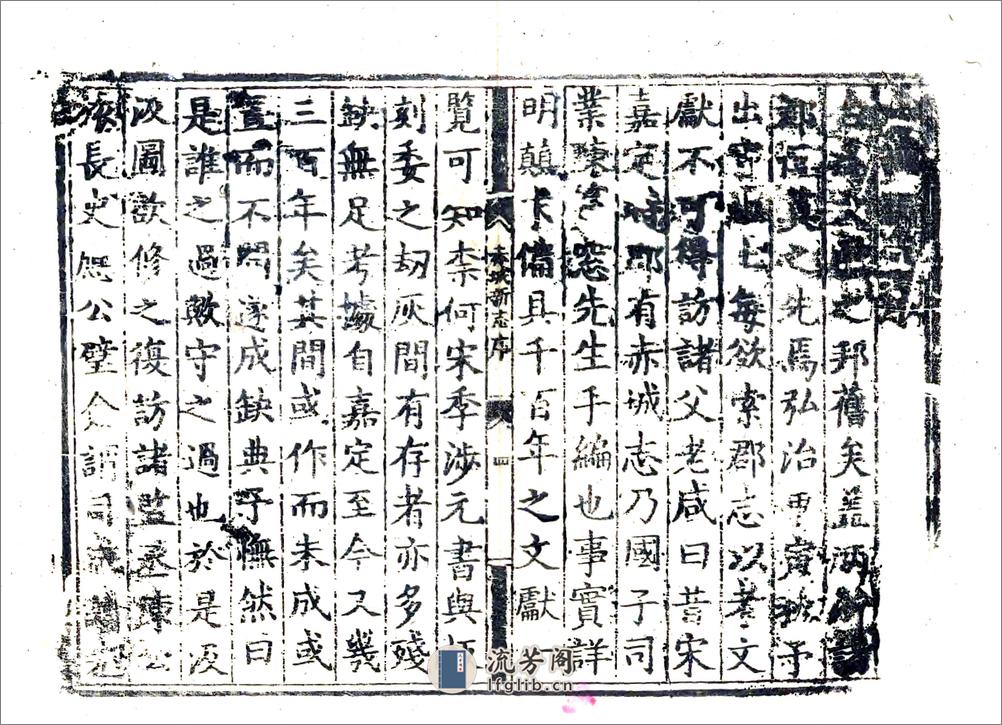 之邦舊矣蓋兩浙諸
郡莫之先焉弘治甲寅秋予
出守此土每欲索郡志以考文
獻不可得訪諸父老咸曰昔宋
嘉定時郡有赤城志乃國子司
業陳窓先生手編也事實詳
明顛末備具千百年之文獻一
赤城新志序 四
覽可知柰何宋季涉元書與板
刻委之刼灰間有存者亦多殘
缺無足考據自嘉定至今又幾
三百年矣其間或作而未成或
置而不問遂成缺典予憮然曰
是誰之過歟守之過也於是汲
汲圖欲修之復訪諸監丞陳公
長史應公璧僉謂司成
流芳阁
lfglib.cn